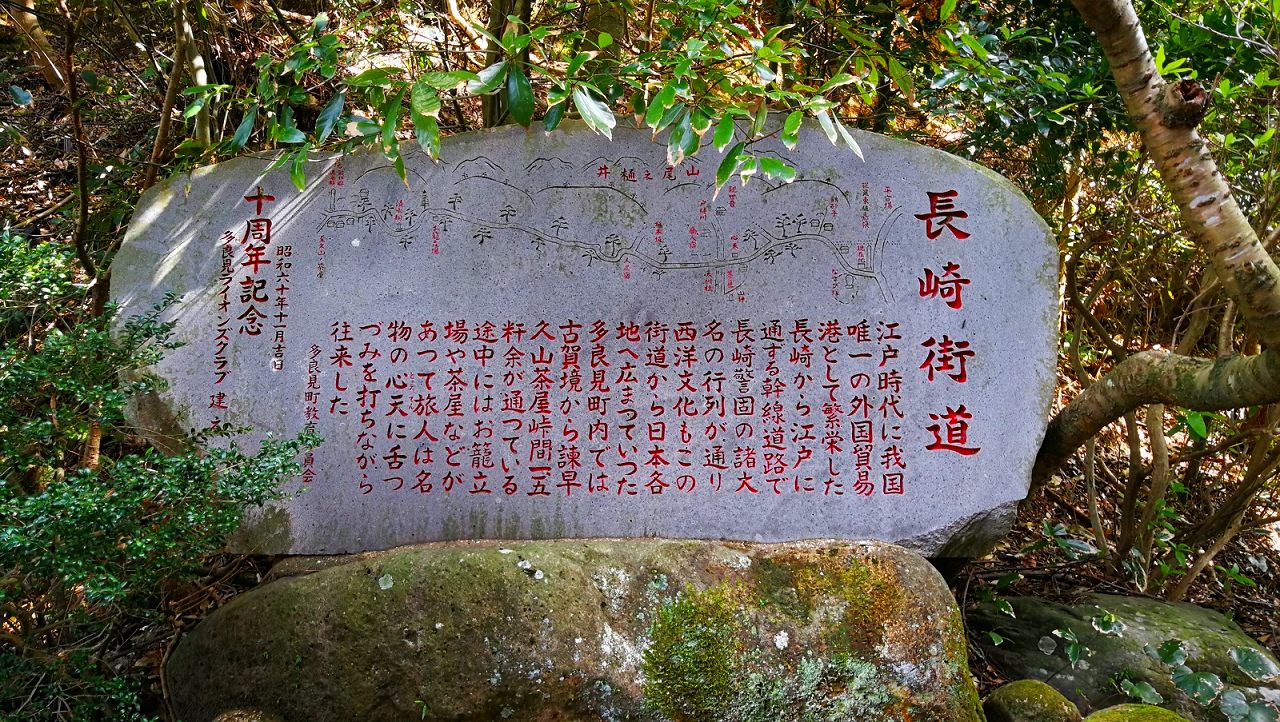 長崎街道
井樋之尾山
江戸時代に我国
唯一の外国貿易
港として繁栄した
長崎から江戸に
通ずる幹線道路で
長崎警固の諸大
名の行列が通り
西洋文化もこの
街道から日本各
地へ広まつていつた
多良見町内では
古賀境から諫早
久山茶屋峠間一五
粁余が通つている
途中にはお籠立
場や茶屋などが
あつて旅人は名
物の心天に舌つ
づみを打ちながら
往来した
多良見町教育委員会
昭和六十年十一月吉日
十周年記念
多良見ライオンズクラブ 建